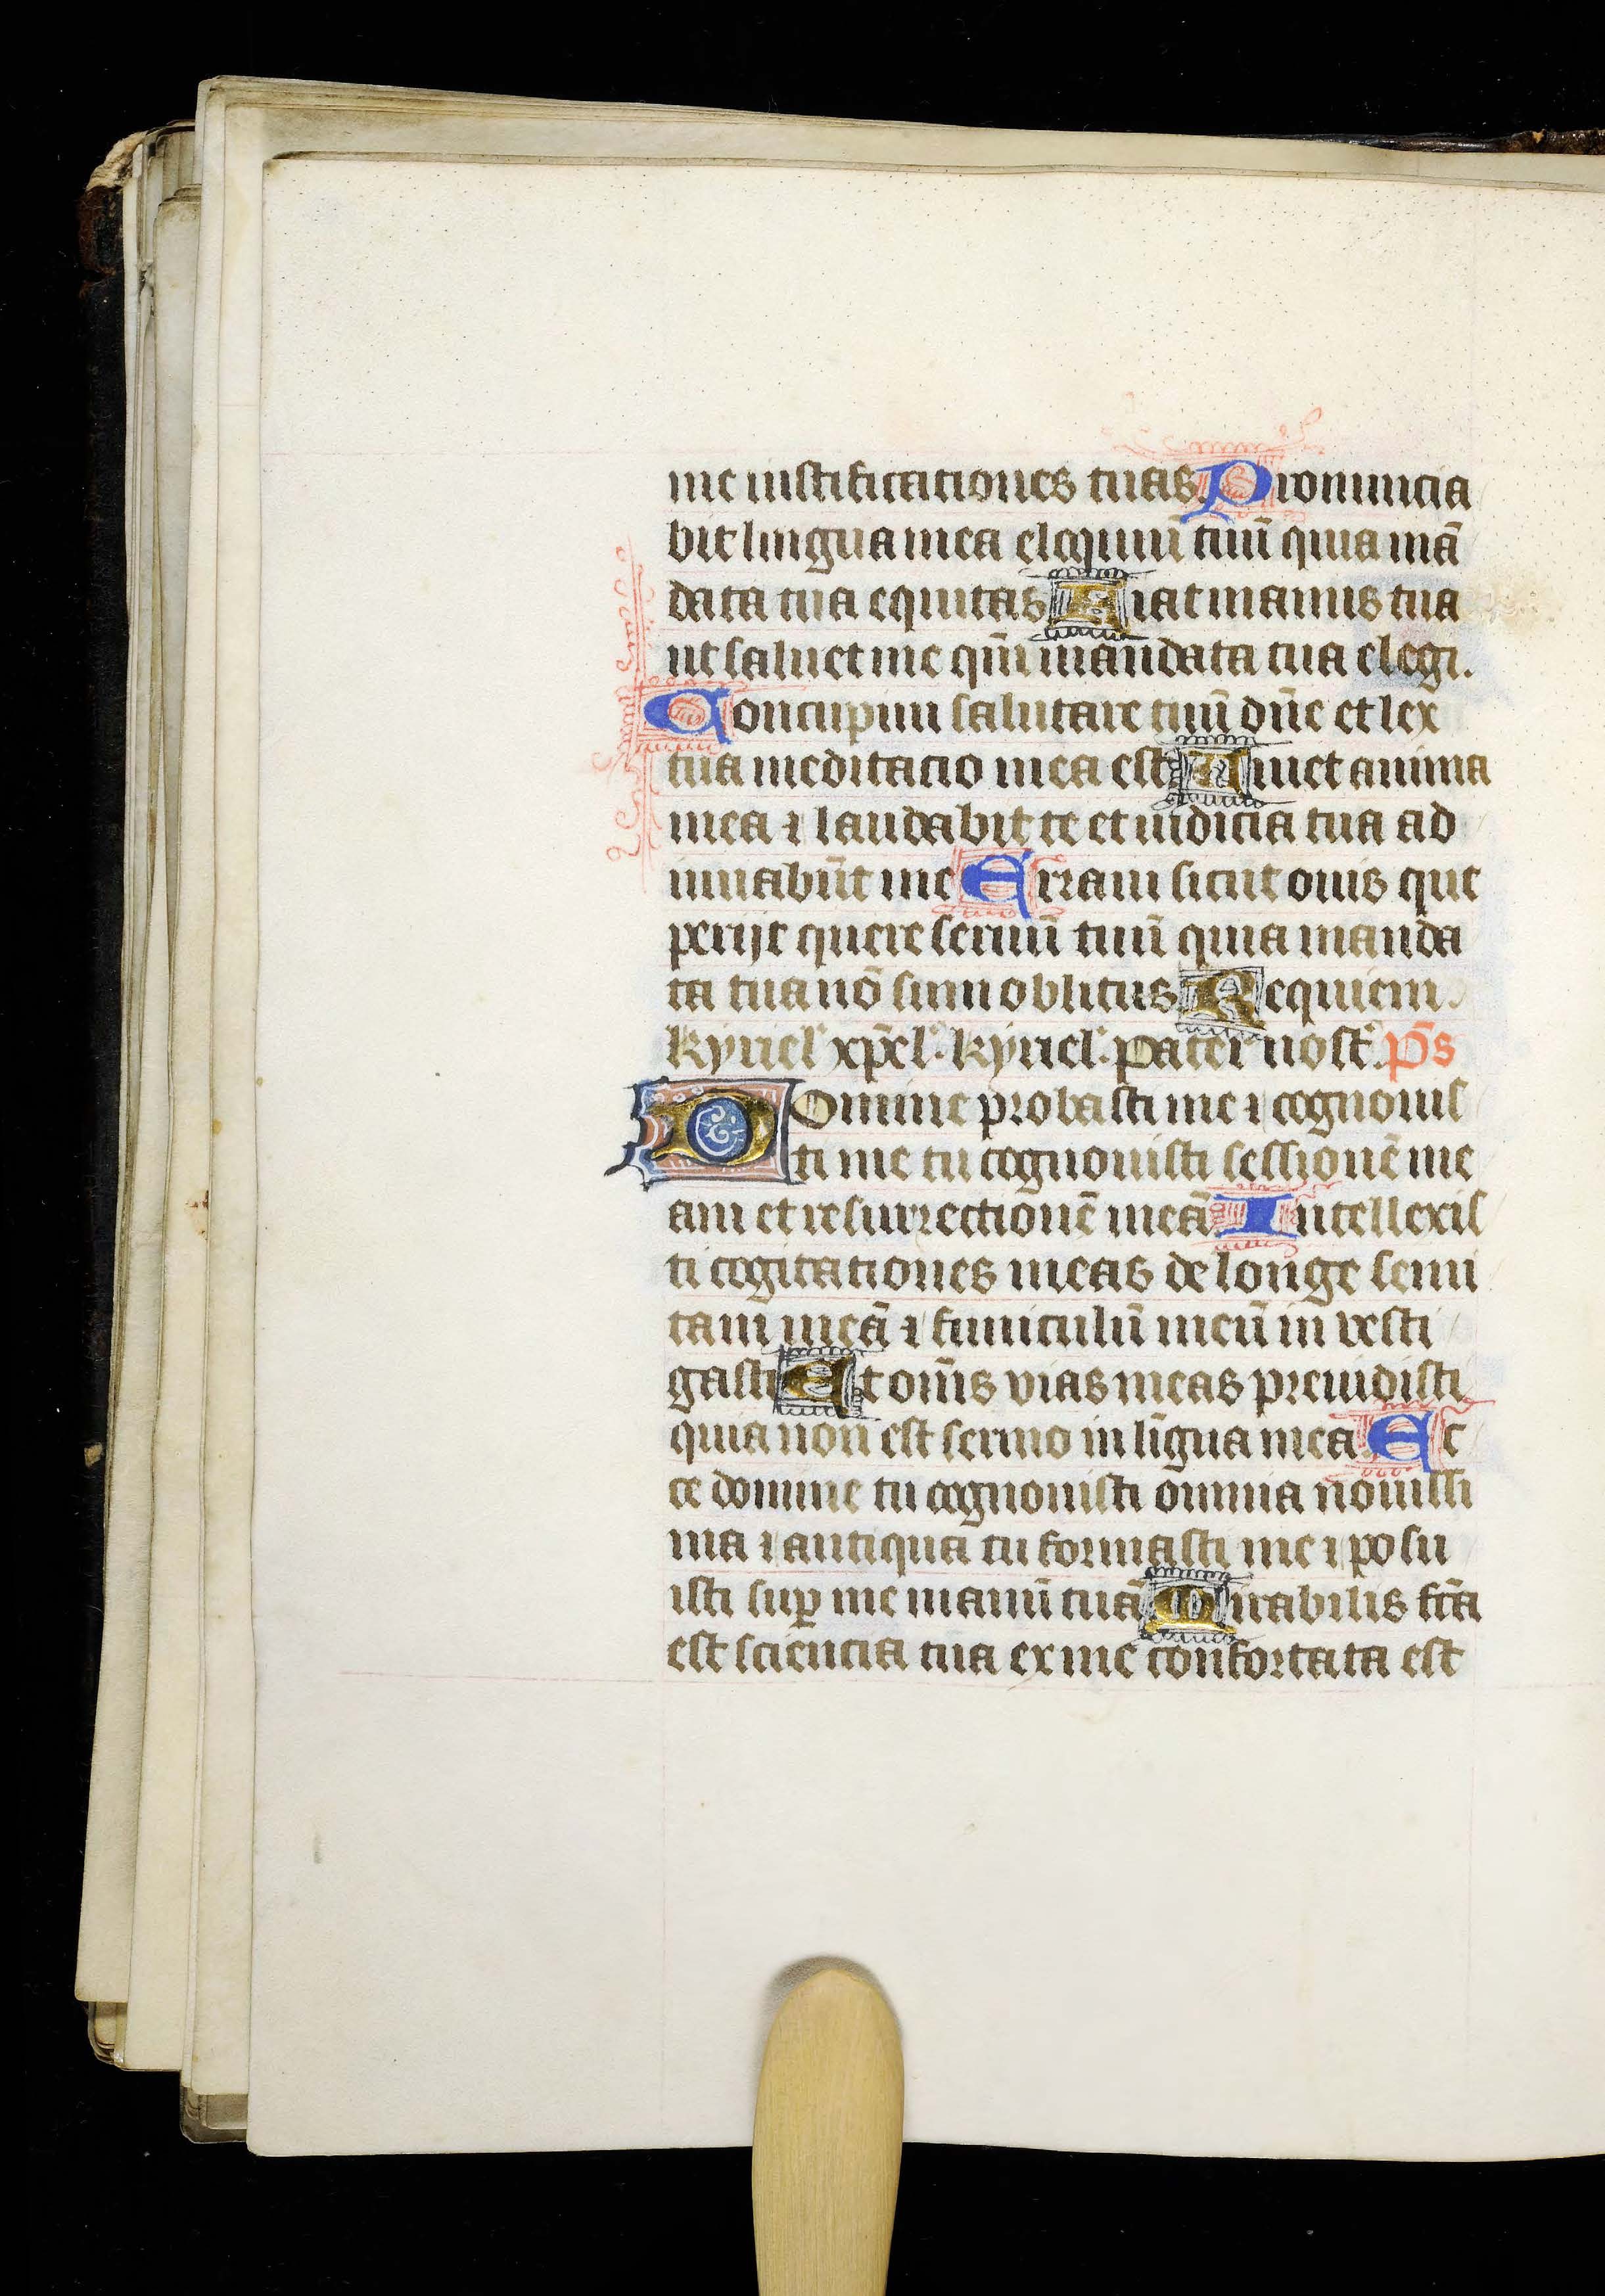 me iustificationes tuas. Pronuncia
bit lingua mea eloquiū tuū quia mā
data tua equitas Fiat manus tua
ut saluet me qm̄ mandata tua elegi.
Concupiui salutare tuū dn̄e et lex
tua meditacio mea est Viuet anima
mea ⁊ laudabit te et iudicia tua ad
iuuabūt me Erraui sicut ouis que
perijt quere seruū tuū quia manda
ta tua nō sum oblitus. Requiem.
kyriel' xp̄el'. kyriel'. Pater nost'. P̄s
Domine probasti me ⁊ cognouis
ti me tu cognouisti sessionē me
am et resurrectionē meā Intellexis
ti cogitationes meas de longe semi
tam meā ⁊ funiculū meū in vesti
gasti Et om̄s vias meas preuidisti
quia non est sermo in līgua mea. Ec
ce domine tu cognouisti omnia nouissi
ma ⁊ antiqua tu formasti me ⁊ posu
isti suꝑ me manū tuā Mirabilis fc̄a
est sciencia tua ex me confortata est